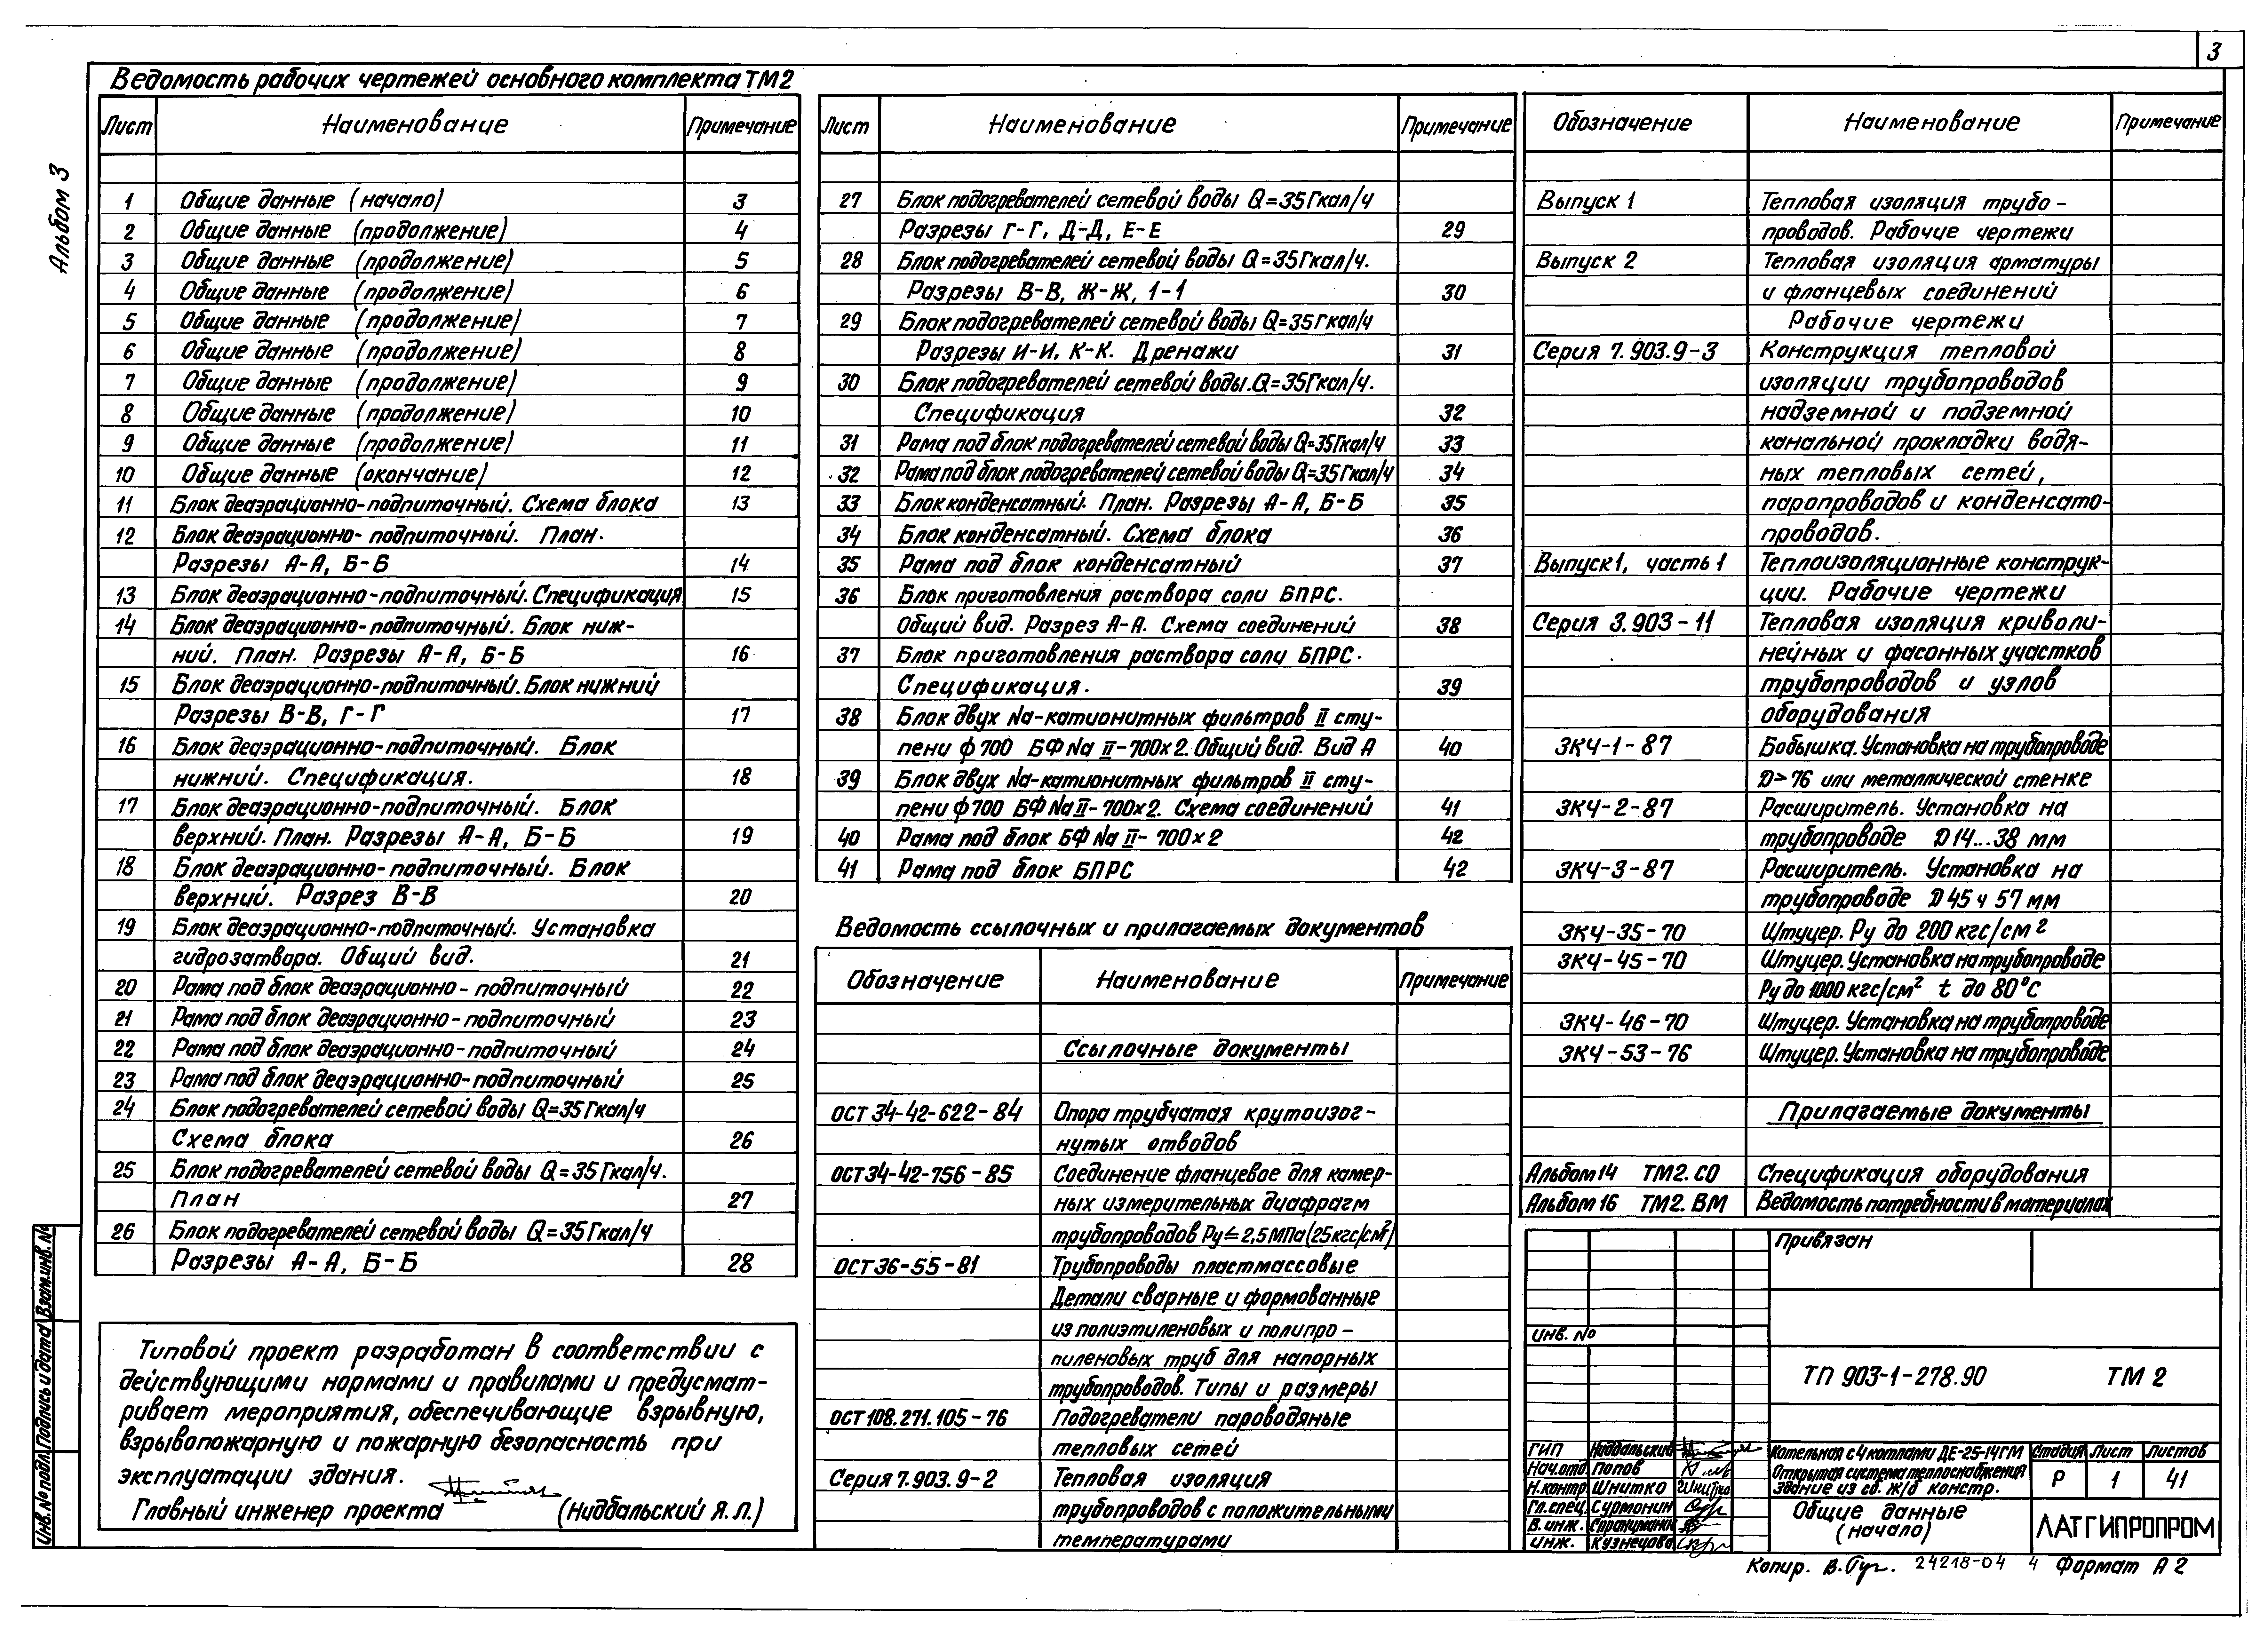 3
Альбом 3
Ведомость рабочих чертежей основного комплекта ТМ2
Лист Наименование Примечание
1 Общие данные (начало) 3
2 Общие данные (продолжение) 4
3 Общие данные (продолжение) 5
4 Общие данные (продолжение) 6
5 Общие данные (продолжение) 7
6 Общие данные (продолжение) 8
7 Общие данные (продолжение) 9
8 Общие данные (продолжение) 10
9 Общие данные (продолжение) 11
10 Общие данные (окончание) 12
11 Блок деаэрационно-подпиточный. Схема блока 13
12 Блок деаэрационно-подпиточный. План.
Разрезы А-А, Б-Б 14
13 Блок деаэрационно-подпиточный. Спецификация 15
14 Блок деаэрационно-подпиточный. Блок ниж-
ний. План. Разрезы А-А, Б-Б 16
15 Блок деаэрационно-подпиточный. Блок нижний
Разрезы В-В, Г-Г 17
16 Блок деаэрационно-подпиточный. Блок
нижний. Спецификация. 18
17 Блок деаэрационно-подпиточный. Блок
верхний. План. Разрезы А-А, Б-Б 19
18 Блок деаэрационно-подпиточный. Блок
верхний. Разрез В-В 20
19 Блок деаэрационно-подпиточный. Установка
гидрозатвора. Общий вид. 21
20 Рама под блок деаэрационно-подпиточный 22
21 Рама под блок деаэрационно-подпиточный 23
22 Рама под блок деаэрационно-подпиточный 24
23 Рама под блок деаэрационно-подпиточный 25
24 Блок подогревателей сетевой воды Q=35Гкал/ч
Схема блока 26
25 Блок подогревателей сетевой воды Q=35Гкал/ч.
План 27
26 Блок подогревателей сетевой воды Q=35Гкал/ч
Разрезы А-А, Б-Б 28
Типовой проект разработан в соответствии с
действующими нормами и правилами и предусмат-
ривает мероприятия, обеспечивающие взрывную,
взрывопожарную и пожарную безопасность при
эксплуатации здания.
Главный инженер проекта (Нидбальский Я.Л.)
Лист Наименование Примечание
27 Блок подогревателей сетевой воды Q=35Гкал/ч
Разрезы Г-Г, Д-Д, Е-Е 29
28 Блок подогревателей сетевой воды Q=35Гкал/ч.
Разрезы В-В, Ж-Ж, 1-1 30
29 Блок подогревателей сетевой воды Q=35Гкал/ч
Разрезы И-И, К-К. Дренажи 31
30 Блок подогревателей сетевой воды. Q=35Гкал/ч.
Спецификация 32
31 Рама под блок подогревателей сетевой воды Q=35Гкал/ч 33
32 Рама под блок подогревателей сетевой воды Q=35Гкал/ч 34
33 Блок конденсатный. План. Разрезы А-А, Б-Б 35
34 Блок конденсатный. Схема блока 36
35 Рама под блок конденсатный 37
36 Блок приготовления раствора соли БПРС.
Общий вид. Разрез А-А. Схема соединений 38
37 Блок приготовления раствора соли БПРС.
Спецификация. 39
38 Блок двух Na-катионитных фильтров II сту-
пени ф700 БФNa II-700х2. Общий вид. Вид А 40
39 Блок двух Na-катионитных фильтров II сту-
пени ф700 БФNa II-700х2. Схема соединений 41
40 Рама под блок БФNa II-700х2 42
41 Рама под блок БПРС 42
Ведомость ссылочных и прилагаемых документов
Обозначение Наименование Примечание
Ссылочные документы
ОСТ 34-42-622-84 Опора трубчатая крутоизог-
нутых отводов
ОСТ 34-42-756-85 Соединение фланцевое для камер-
ных измерительных диафрагм
трубопроводов Ру≤2,5МПа (25кгс/см²)
ОСТ 36-55-81 Трубопроводы пластмассовые
Детали сварные и формованные
из полиэтиленовых и полипро-
пиленовых труб для напорных
трубопроводов. Типы и размеры
ОСТ 108.271.105-76 Подогреватели пароводяные
тепловых сетей
Серия 7.903.9-2 Тепловая изоляция
трубопроводов с положительными
температурами
Обозначение Наименование Примечание
Выпуск 1 Тепловая изоляция трубо-
проводов. Рабочие чертежи
Выпуск 2 Тепловая изоляция арматуры
и фланцевых соединений
Рабочие чертежи
Серия 7.903.9-3 Конструкция тепловой
изоляции трубопроводов
надземной и подземной
канальной прокладки водя-
ных тепловых сетей,
паропроводов и конденсато-
проводов.
Выпуск 1, часть 1 Теплоизоляционные конструк-
ции. Рабочие чертежи
Серия 3.903-11 Тепловая изоляция криволи-
нейных и фасонных участков
трубопроводов и узлов
оборудования
ЗКЧ-1-87 Бобышка. Установка на трубопроводе
D>76 или металлической стенке
ЗКЧ-2-87 Расширитель. Установка на
трубопроводе D14...38 мм
ЗКЧ-3-87 Расширитель. Установка на
трубопроводе D45 и 57 мм
ЗКЧ-35-70 Штуцер. Ру до 200 кгс/см²
ЗКЧ-45-70 Штуцер. Установка на трубопроводе
Ру до 1000 кгс/см² t до 80°С
ЗКЧ-46-70 Штуцер. Установка на трубопроводе
ЗКЧ-53-76 Штуцер. Установка на трубопроводе
Прилагаемые документы
Альбом 14 ТМ2.СО Спецификация оборудования
Альбом 16 ТМ2.ВМ Ведомость потребности в материалах
Привязан
Инв. №
ТП 903-1-278.90 ТМ 2
ГИП Нидбальский
Нач.отд. Попов
Н.контр. Шнитко
Гл.спец. Сурмонин
В.инж.
Инж. Кузнецова
Котельная с 4 котлами ДЕ-25-14ГМ
Открытая система теплоснабжения
Здание из сб. ж/б констр.
Стадия Лист Листов
Р 1 41
Общие данные
(начало)
ЛАТГИПРОПРОМ
Копир. 24218-04 4 Формат А2
Инв. № подл. Подпись и дата Взам.инв.№